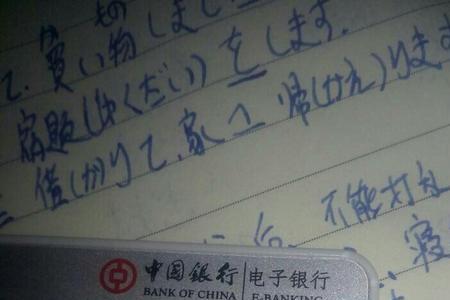 もの
か
て、買い物しまし
宿題(しゅくだい)をします。
借(か)りて、家へ帰(かえ)ります
不能打
寝
中国银行 电子银行
BANK OF CHINA E-BANKING